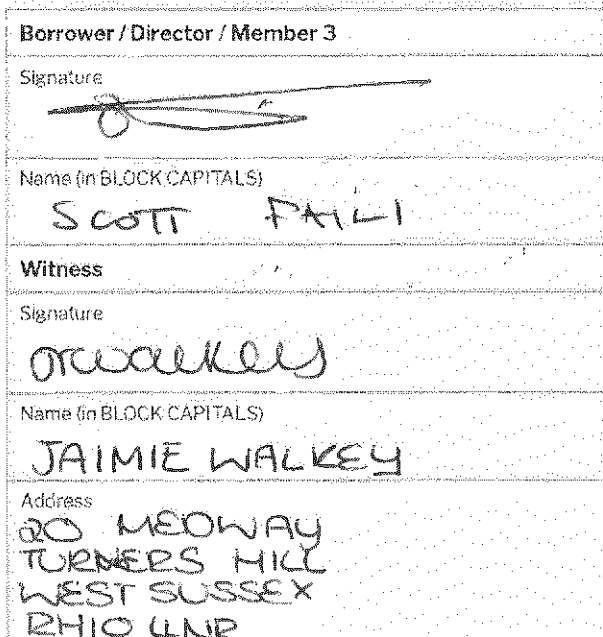 Borrower / Director / Member 3
Signature
Name (in BLOCK CAPITALS)
SCOTT FAILI
Witness
Signature
Name (in BLOCK CAPITALS)
JAIMIE WALKEY
Address
20 MEDWAY
TURNERS HILL
WEST SUSSEX
RH10